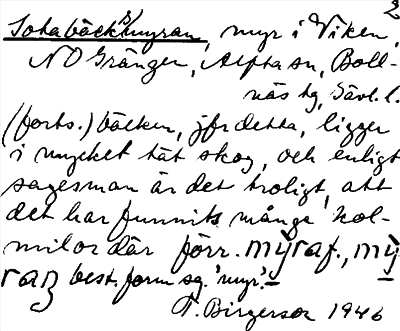 2
Sotabäcksmyran, myr i Viken,
NO Gränger, Alfta sn, Boll-
näs tg, Gävl. l.
(forts.) bäcken, jfr detta, ligger
i mycket tät skog, och enligt
sagesman är det troligt, att
det har funnits många kol-
milor där förr. mỳraf., mỳ
ran best. form sg. 'myr'.
T. Birgersson 1946